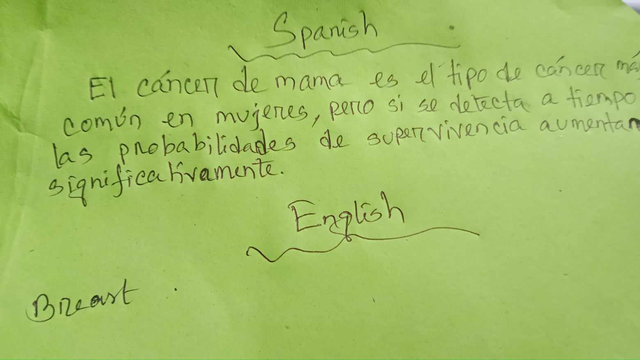 Spanish
El cáncer de mama es el tipo de cáncer má
común en mujeres, pero si se detecta a tiempo
las probabilidades de supervivencia aumentan
significativamente.
English
Breast